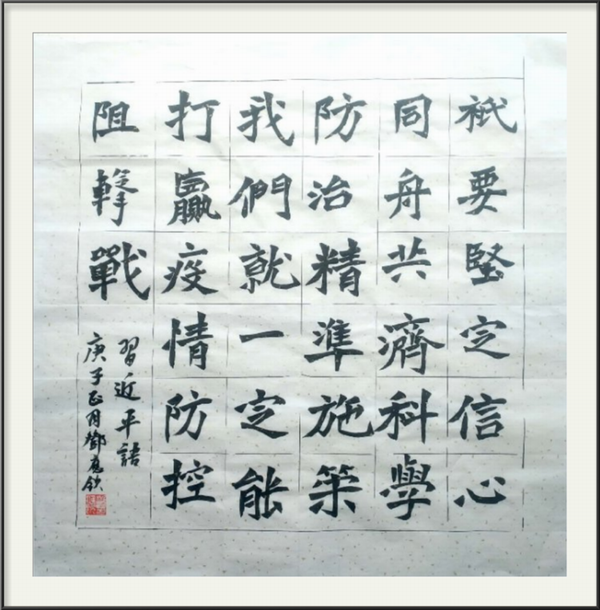 祇要堅定信心
同舟共濟科學
防治精準施策
我們就一定能
打贏疫情防控
阻擊戰
習近平語
庚子正月鄧應欽